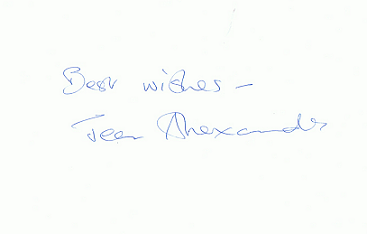 Best wishes –
Jean Alexander